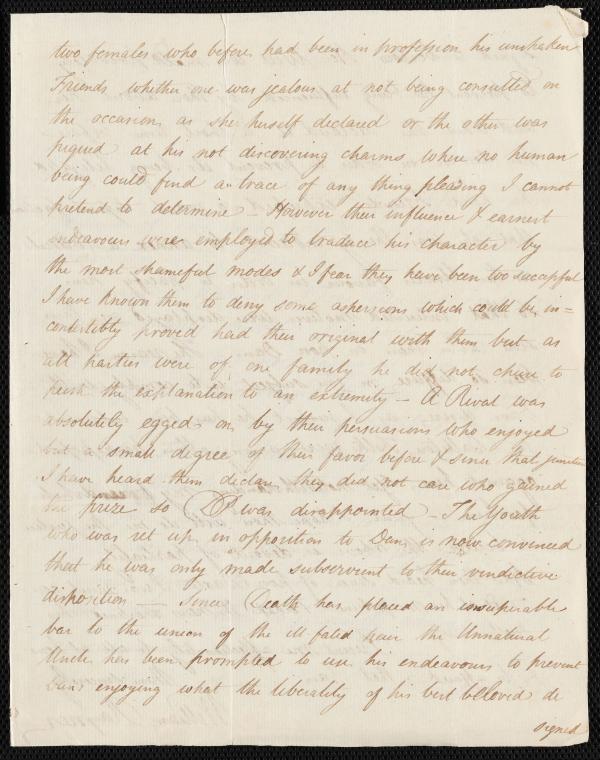 two females who before had been in profession his unshaken
Friends whether one was jealous at not being consulted on
the occasion as she herself declared or the other was
piqued at his not discovering charms where no human
being could find a trace of any thing pleasing I cannot
pretend to determine - However their influence & earnest
endeavours were employed to traduce his character by
the most shameful modes & I fear they have been too successful
I have known them to deny some aspersions which could be in=
contestibly proved had their original with them but as
all parties were of one family he did not chuse to
push the explanation to an extremity - A Rival was
absolutely egged on by their persuasions who enjoyed
but a small degree of their favor before & since that juncture
I have heard them declare they did not care who gained
the prize so D P was disappointed - The Youth
who was set up in opposition to Dan is now convinced
that he was only made subservient to their vindictive
disposition - Since Death has placed an insuperable
bar to the union of the ill fated pair the Unnatural
Uncle has been prompted to use his endeavours to prevent
Dan's enjoying what the liberality of his best beloved de
signed